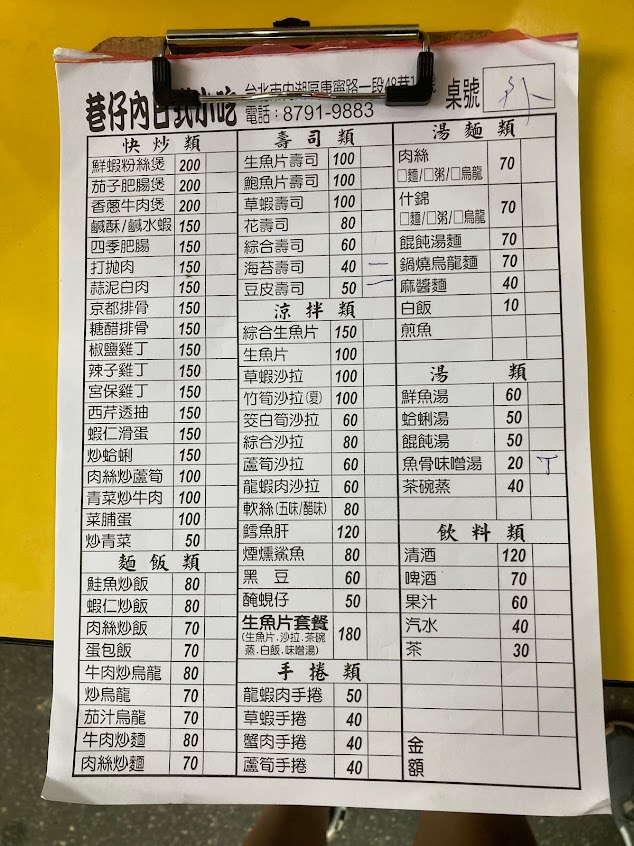 巷仔內日式小吃
台北市內湖區康寧路一段48巷1號
電話：8791-9883
桌號 外
快炒類
鮮蝦粉絲煲 200
茄子肥腸煲 200
香蔥牛肉煲 200
鹹酥/鹹水蝦 150
四季肥腸 150
打拋肉 150
蒜泥白肉 150
京都排骨 150
糖醋排骨 150
椒鹽雞丁 150
辣子雞丁 150
宮保雞丁 150
西芹透抽 150
蝦仁滑蛋 150
炒蛤蜊 150
肉絲炒蘆筍 100
青菜炒牛肉 100
菜脯蛋 100
炒青菜 50
麵飯類
鮭魚炒飯 80
蝦仁炒飯 80
肉絲炒飯 70
蛋包飯 70
牛肉炒烏龍 80
炒烏龍 70
茄汁烏龍 70
牛肉炒麵 80
肉絲炒麵 70
壽司類
生魚片壽司 100
鮑魚片壽司 100
草蝦壽司 100
花壽司 80
綜合壽司 60
海苔壽司 40 一
豆皮壽司 50 一
涼拌類
綜合生魚片 150
生魚片 100
草蝦沙拉 100
竹筍沙拉(夏) 100
筊白筍沙拉 60
綜合沙拉 80
蘆筍沙拉 60
龍蝦肉沙拉 60
軟絲(五味/醋味) 80
鱈魚肝 120
煙燻鯊魚 80
黑豆 60
醃蜆仔 50
生魚片套餐 180
(生魚片.沙拉.茶碗
蒸.白飯.味噌湯)
手捲類
龍蝦肉手捲 50
草蝦手捲 40
蟹肉手捲 40
蘆筍手捲 40
湯麵類
肉絲 70
□麵/□粥/□烏龍
什錦 70
□麵/□粥/□烏龍
餛飩湯麵 70
鍋燒烏龍麵 70
麻醬麵 40
白飯 10
煎魚
湯類
鮮魚湯 60
蛤蜊湯 50
餛飩湯 50
魚骨味噌湯 20 丅
茶碗蒸 40
飲料類
清酒 120
啤酒 70
果汁 60
汽水 40
茶 30
金
額